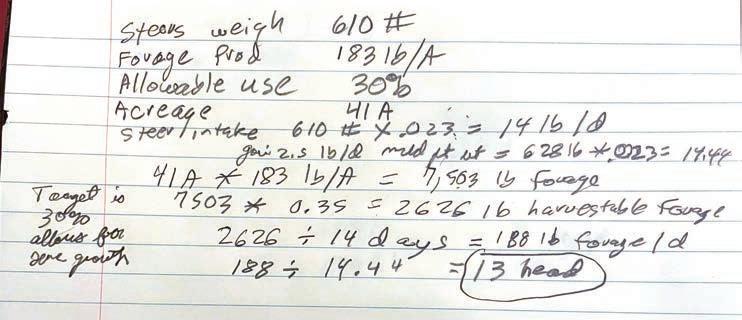 Steers weigh 610 #
Forage Prod 183 lb/A
Allowable use 30%
Acreage 41 A
Steer intake 610 # X .023 = 14 lb/d
gain 2.5 lb/d mid pt wt = 628 lb * .023 = 14.44
41A * 183 lb/A = 7,503 lb forage
7503 * 0.35 = 2626 lb harvestable forage
2626 ÷ 14 days = 188 lb forage/d
188 ÷ 14.44 = 13 head
Target is
30%
allows for
some growth